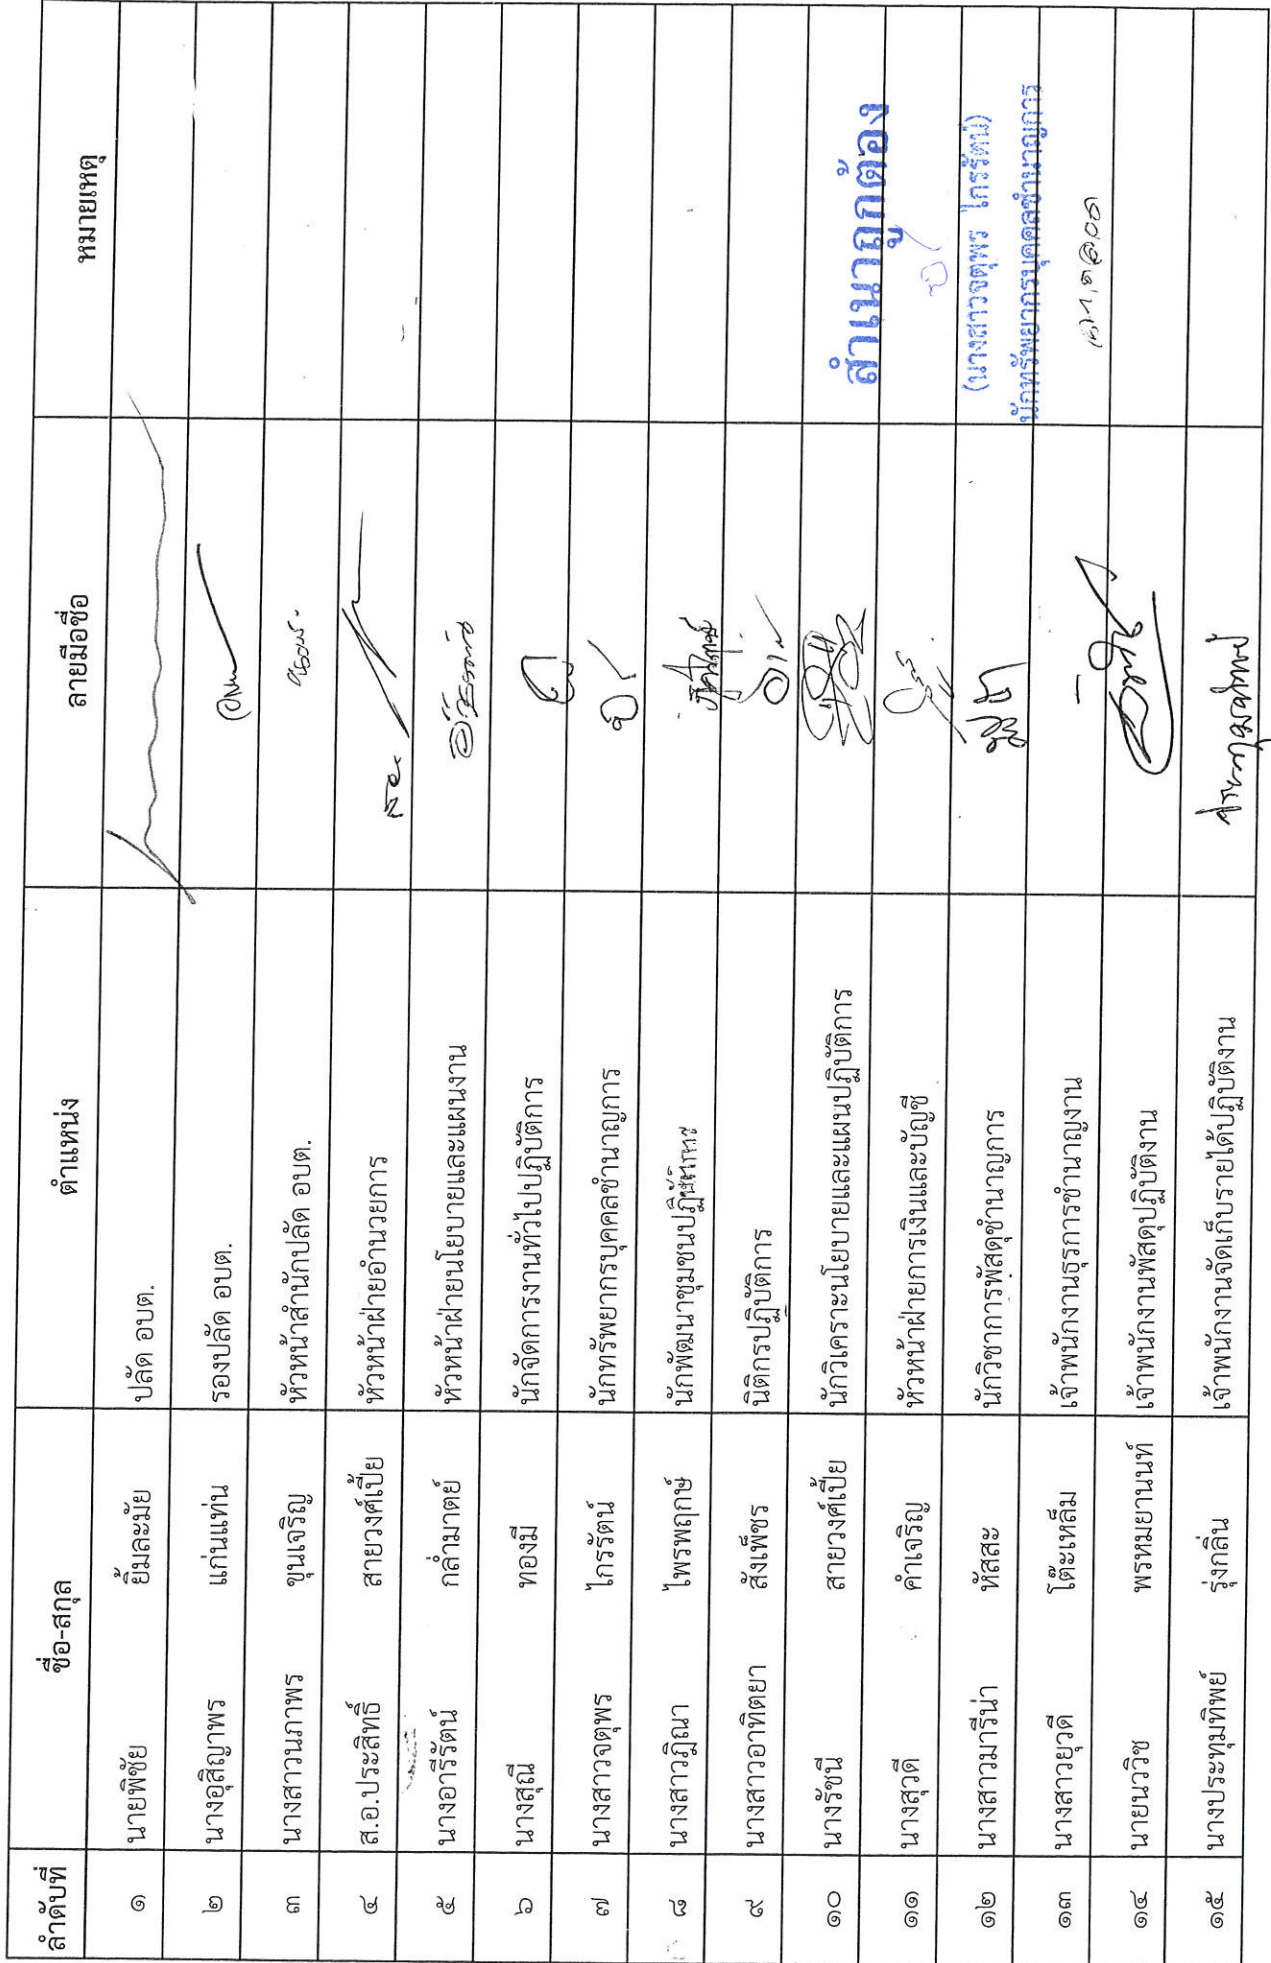 ลำดับที่ ชื่อ-สกุล ตำแหน่ง ลายมือชื่อ หมายเหตุ
๑ นายพิชัย ยิ้มละมัย ปลัด อบต.
๒ นางอุสิญาพร แก่นแท่น รองปลัด อบต.
๓ นางสาวนภาพร ขุนเจริญ หัวหน้าสำนักปลัด อบต.
๔ ส.อ.ประสิทธิ์ สายวงศ์เปี้ย หัวหน้าฝ่ายอำนวยการ
๕ นางอารีรัตน์ กล่ำมาตย์ หัวหน้าฝ่ายนโยบายและแผนงาน
๖ นางสุณี ทองมี นักจัดการงานทั่วไปปฏิบัติการ
๗ นางสาวจตุพร ไกรรัตน์ นักทรัพยากรบุคคลชำนาญการ
๘ นางสาวภิญา ไพรพฤกษ์ นักพัฒนาชุมชนปฏิบัติการ
๙ นางสาวอาทิตยา สังเพ็ชร นิติกรปฏิบัติการ
๑๐ นางรัชนี สายวงศ์เปี้ย นักวิเคราะนโยบายและแผนปฏิบัติการ
สำเนาถูกต้อง
๑๑ นางสุวดี คำเจริญ หัวหน้าฝ่ายการเงินและบัญชี
๑๒ นางสาวมารีน่า หัสสะ นักวิชาการพัสดุชำนาญการ
(นางสาวจตุพร ไกรรัตน์)
นักทรัพยากรบุคคลชำนาญการ
๑๓ นางสาวยุวดี โต๊ะเหล็ม เจ้าพนักงานธุรการชำนาญงาน
๑๔ นายนววิช พรหมยานนท์ เจ้าพนักงานพัสดุปฏิบัติงาน
๑๕ นางประทุมทิพย์ รุ่งกลิ่น เจ้าพนักงานจัดเก็บรายได้ปฏิบัติงาน